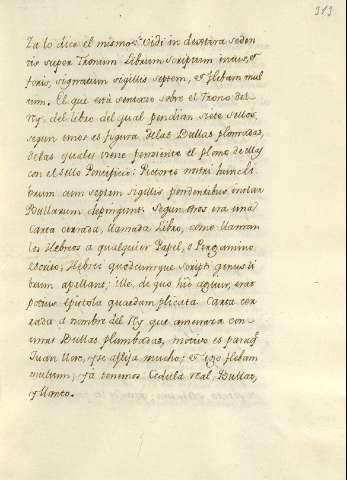 313
Ya lo dice el mismo: Vidi in dextera seden
tis super Tronum Librum scriptum intus, et
foris, signatum sigillis septem, et flebam mul
tum. El que está sentado sobre el Trono del
Rey, del libro del qual pendian siete sellos,
segun unos es figura de las Bullas plomadas,
de las quales viene pendiente el plomo de
con el sello Pontificio: Pictores nostri hunc li
brum cum septem sigillis pendentibus instar
Bullarum depingunt. Segun otros era una
Carta cerrada, llamada Libro, como llaman
los Hebreos a qualquier Papel, o Pergamino
escrito, Hebrei quodcumque scripti genus li
brum apellant; Ille, de quo hic agitur, erat
potius epistola quaedam plicata. Carta cer
rada a nombre del Rey que amenaza con
unas Bullas plombadas, motivo es para q.
Juan llore, y se aflija mucho; et ego flebam
multum; ya tenemos Cedula real, Bullas,
y llanto.